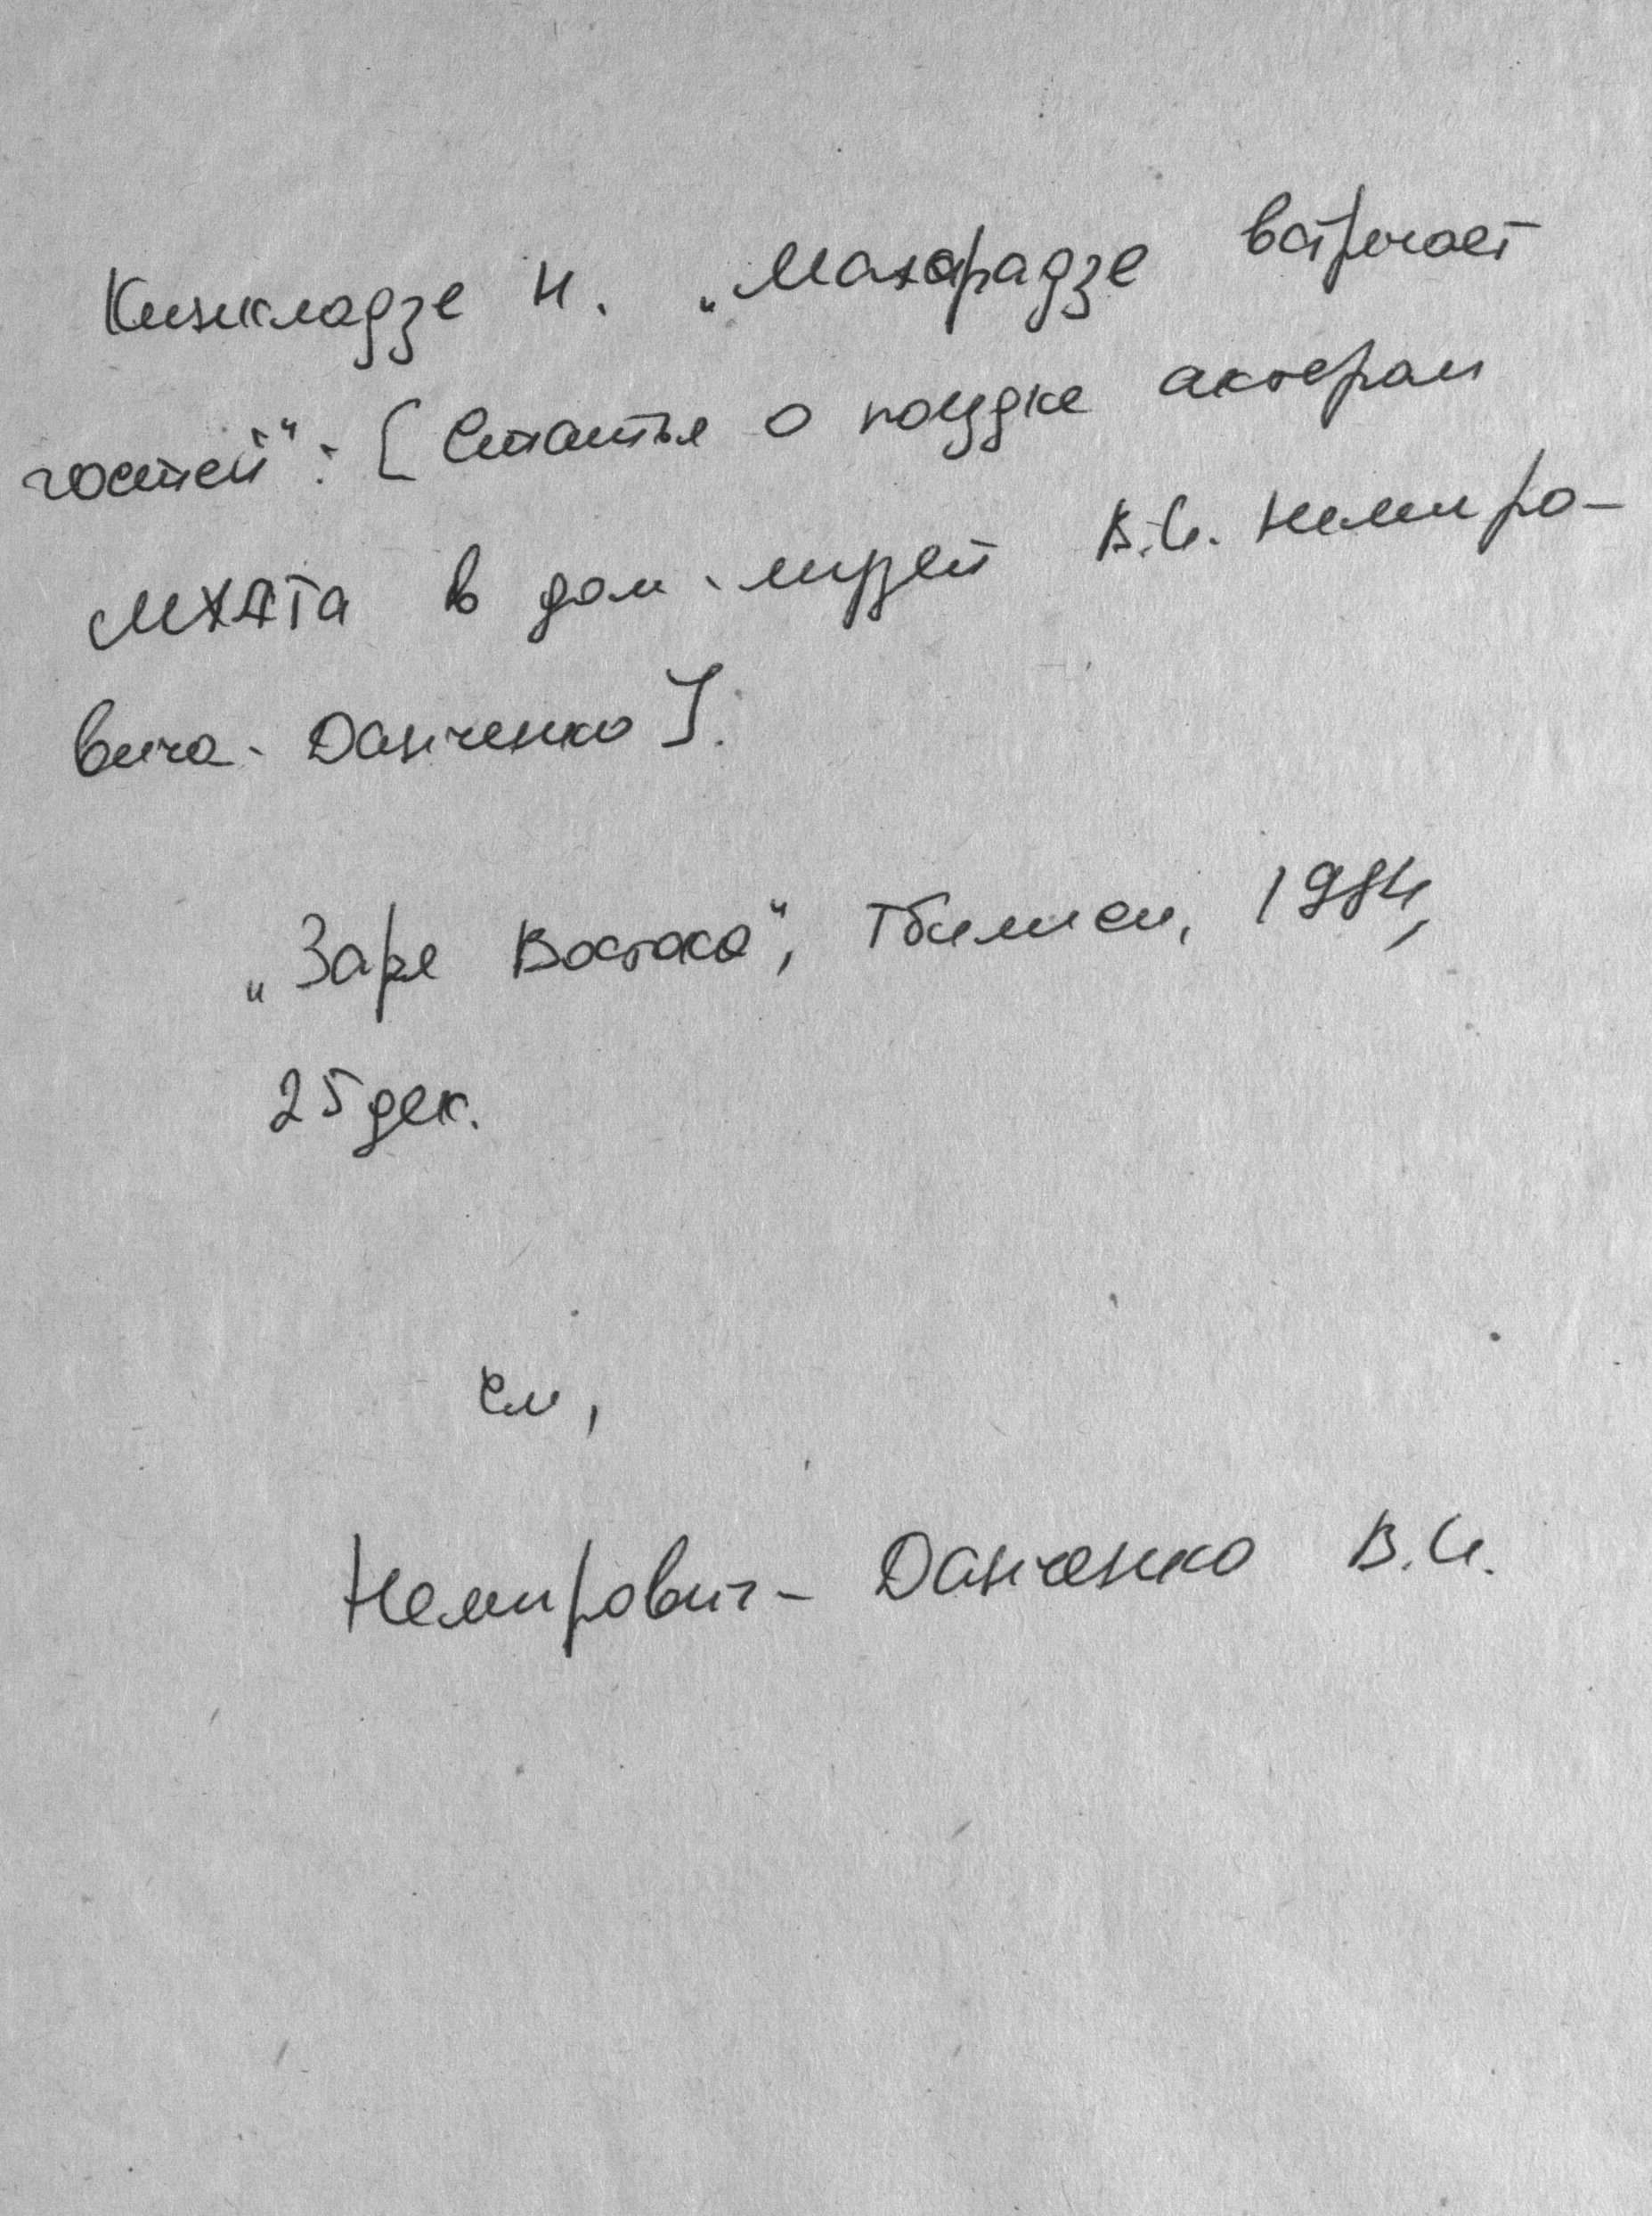 Кинкладзе Н. „Махарадзе встречает
гостей": [Статья о поездке актерам
МХАТа в дом-музей В.И. Немиро-
вича-Данченко].
„Заря Востока", Тбилиси, 1984,
25 дек.
см,
Немирович-Данченко В.И.